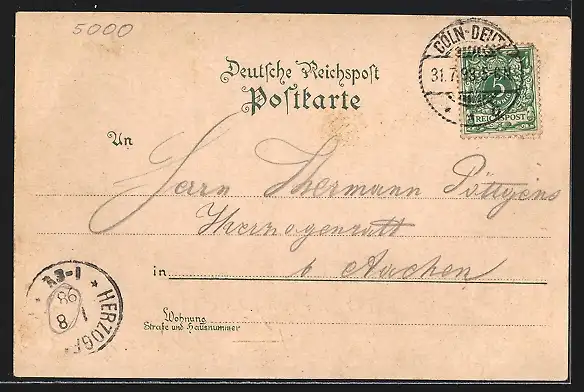 5000
CÖLN-DEUTZ
31.7.98
5
REICHSPOST
Deutsche Reichspost
Postkarte
An
Herrn Hermann Pöttgens
Herzogenrath
in b Aachen
HERZOG
98
1
8
Wohnung
Straße und Hausnummer